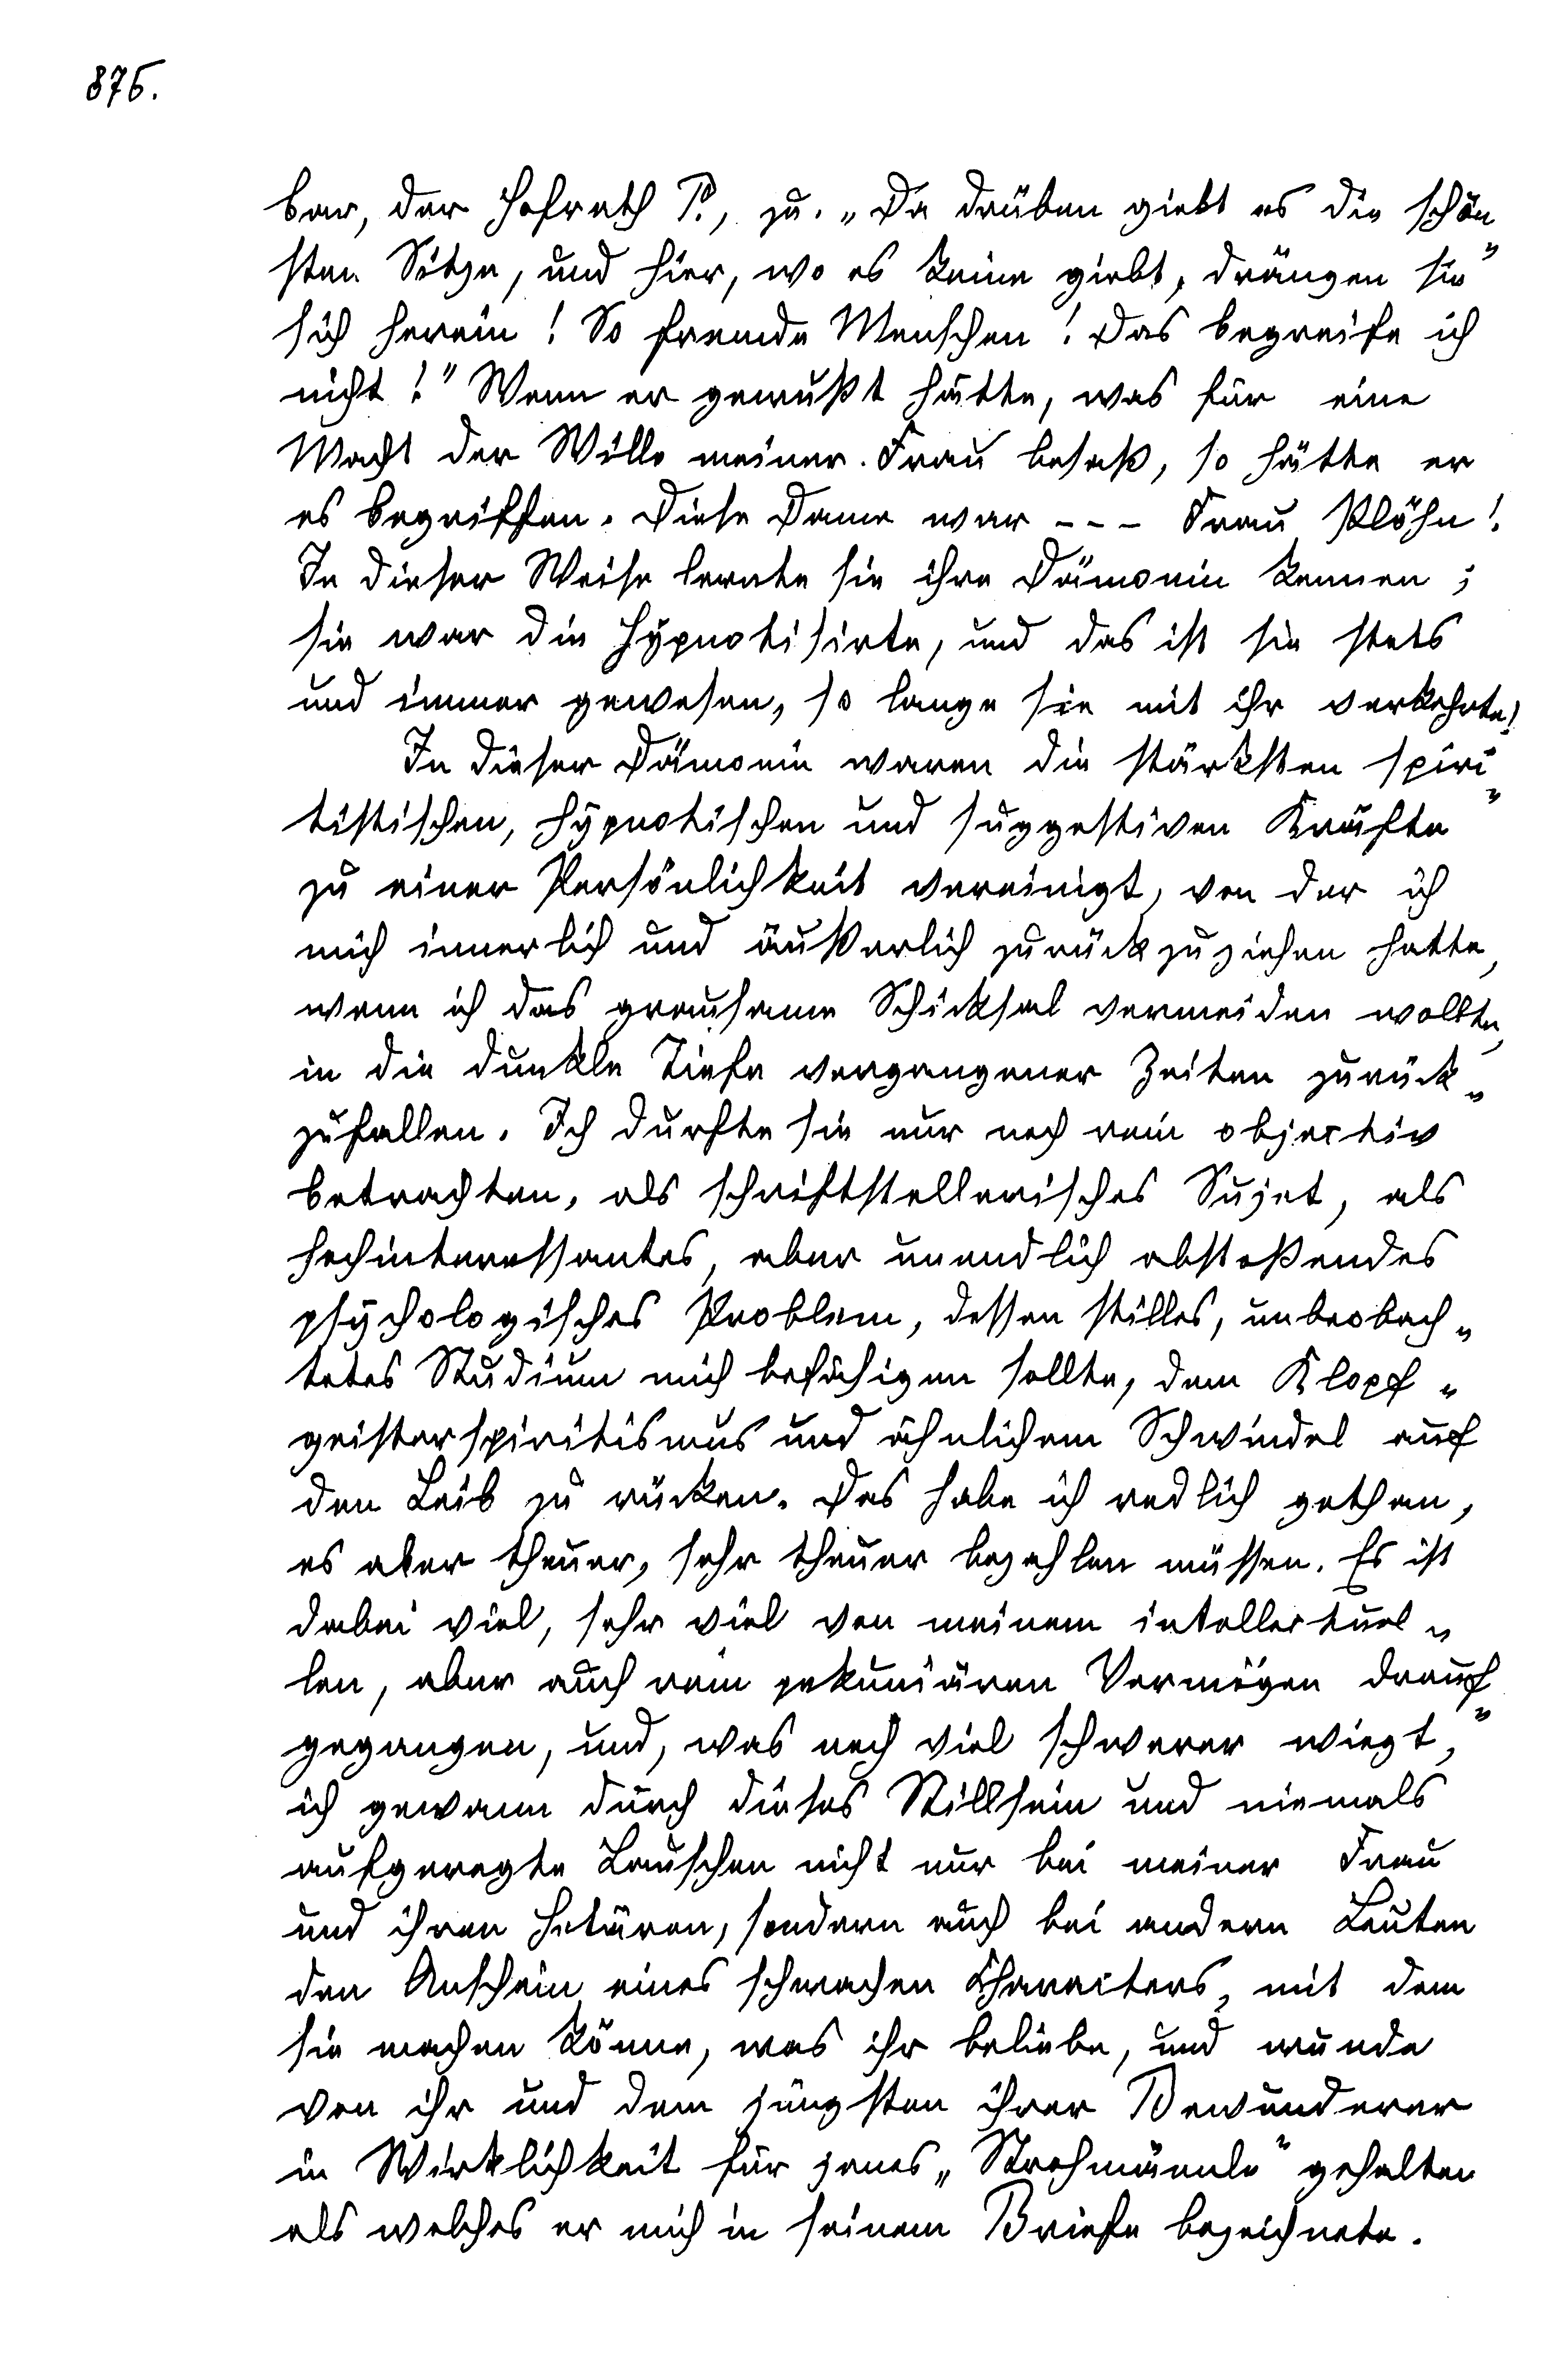 875.
bar, der Hofrath P., zu. „Da drüben giebt es die schön„
sten Sitze, und hier, wo es keine giebt, drängen sie
sich herein! So fremde Menschen! Das begreife ich
nicht!" Wenn er gewußt hätte, was für eine
Macht der Wille meiner Frau besaß, so hätte er
es begriffen. Diese Dame war --- Frau Plöhn!
In dieser Weise lernte sie ihre Dämonin kennen;
sie war die Hypnotisirte, und das ist sie stets
und immer gewesen, so lange sie mit ihr verkehrte!
In dieser Dämonin waren die stärksten spiri„
tistischen, hypnotischen und suggestiven Kräfte
zu einer Persönlichkeit vereinigt, von der ich
mich innerlich und äußerlich zurückzuziehen hatte,
wenn ich das grausame Schicksal vermeiden wollte,
in die dunkle Tiefe vergangener Zeiten zurück„
zufallen. Ich durfte sie nur noch rein objectiv
betrachten, als schriftstellerisches Sujet, als
hochinteressantes, aber unendlich abstoßendes
psychologisches Problem, dessen stilles, unbeobach„
tetes Studium mich befähigen sollte, dem Klopf„
geisterspiritismus und ähnlichem Schwindel auf
den Leib zu rücken. Das habe ich redlich gethan,
es aber theuer, sehr theuer bezahlen müssen. Es ist
dabei viel, sehr viel von meinem intellectuel„
len, aber auch rein pekuniären Vermögen drauf„
gegangen, und, was noch viel schwerer wiegt,
ich gewann durch dieses Stillsein und niemals
aufgeregte Lauschen nicht nur bei meiner Frau
und ihren Hetären, sondern auch bei andern Leuten
den Anschein eines schwachen Characters, mit dem
sie machen könne, was ihr beliebe, und wurde
von ihr und dem jüngsten ihrer Bewunderer
in Wirklichkeit für jenes „Strohmännle" gehalten
als welches er mich in seinem Briefe bezeichnete.